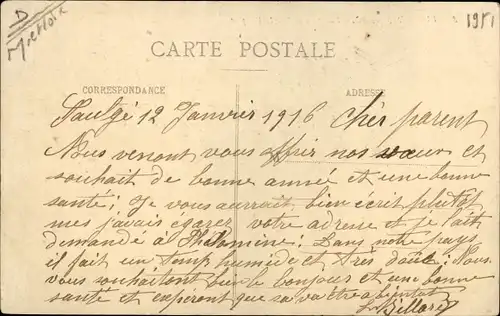 D
1951
CARTE POSTALE
CORRESPONDANCE
ADRESSE
Saulgé 12 Janvier 1916 Chér parent
Nous venont vous offrir nos vœux et
souhait de bonne année et une bonne
santé; Je vous aurrait bien ecrit plutôt
mes javais egarez votre adresse et je lait
demandé à Philomine; Dans notre pays
il fait un temp humide et tres doûte; Nous
vous souhaitont bien le bonjour et une bonne
santé et espéront que sa va être a bientot
Billard